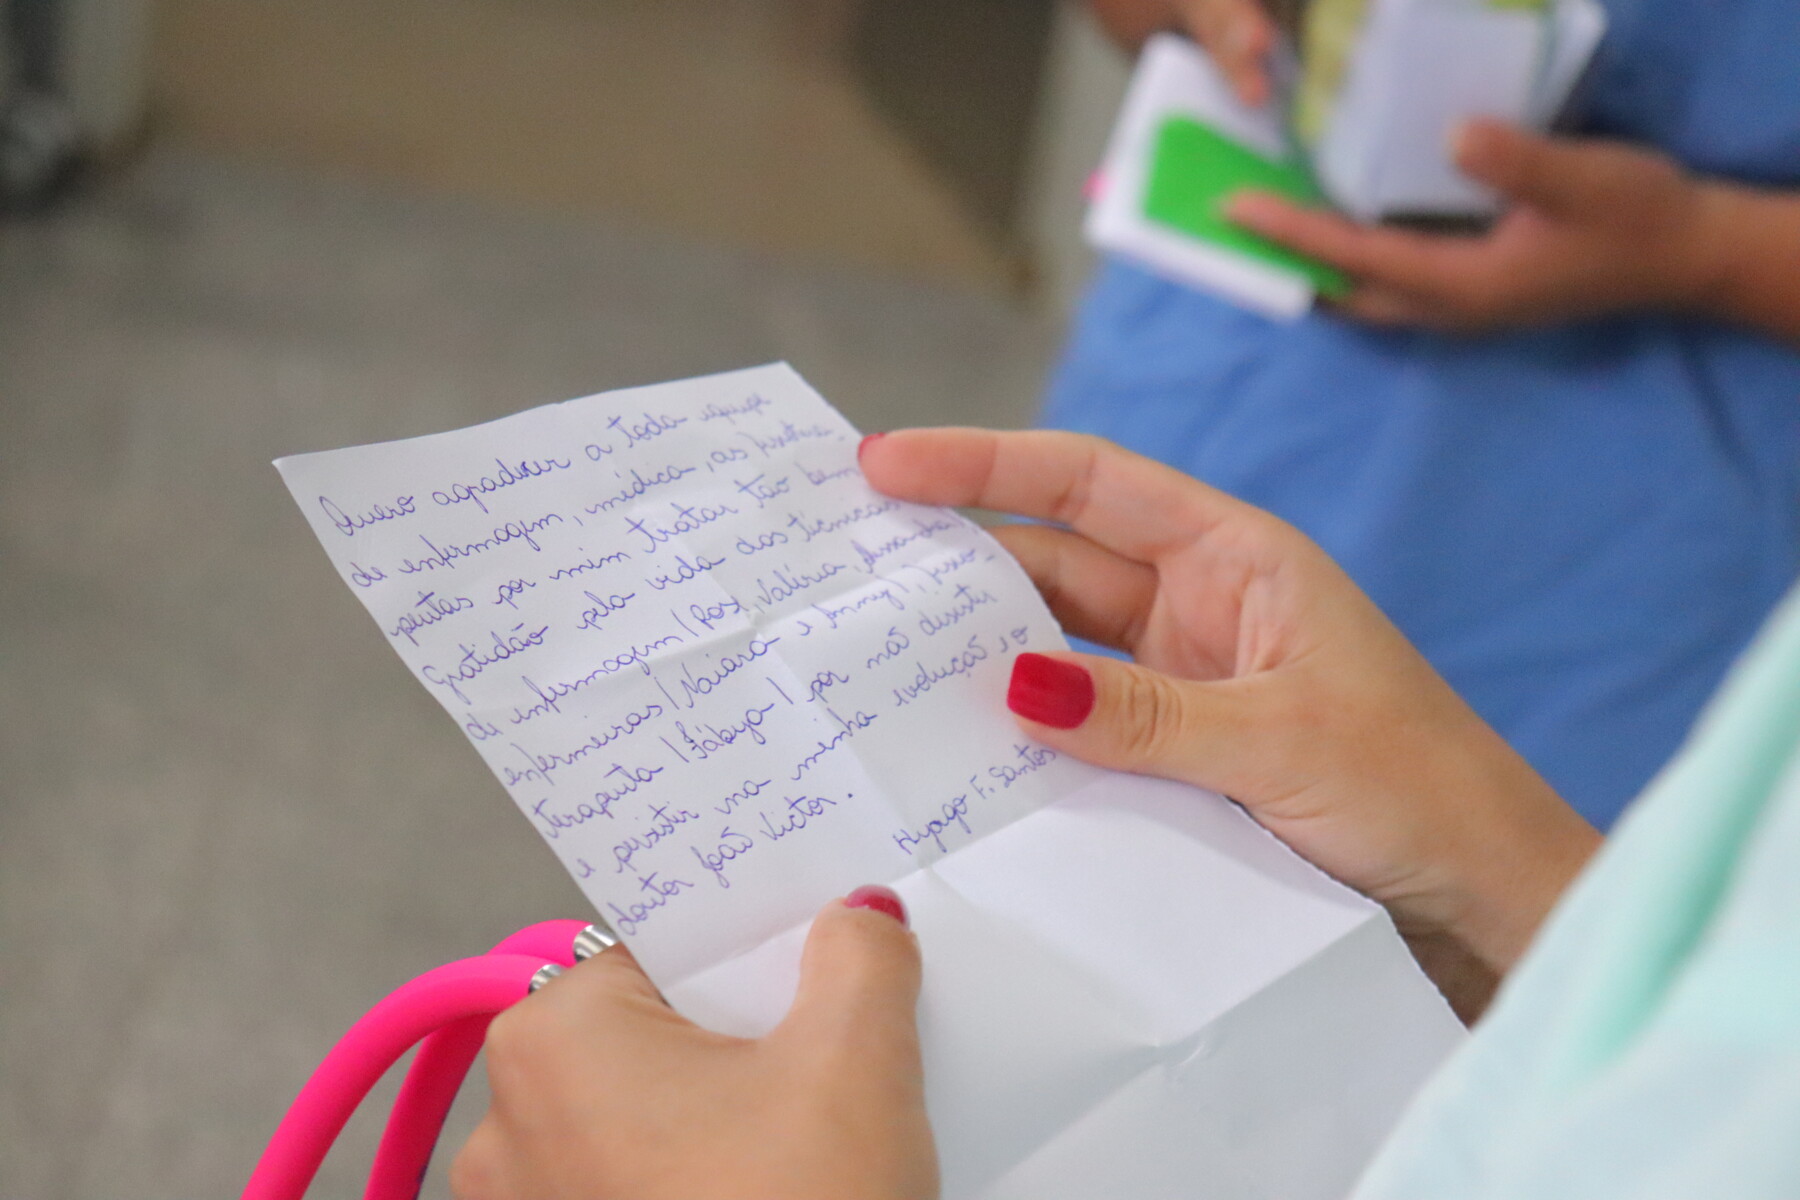 Quero agradecer a toda equipe
de enfermagem, médica, as fisiotera-
peutas por mim tratar tão bem
Gratidão pela vida das técnicas
de enfermagem (Rose, Valéria,
enfermeiras (Naiara e
terapeuta (Fábya) por não desistir
e persistir na minha evolução e o
doutor João Victor.
Hyago F. Santos